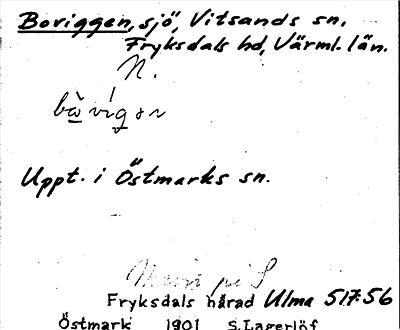 Boriggen, sjö, Vitsands sn.
Fryksdals hd, Värml. län.
N.
Uppt. i Östmarks sn.
Fryksdals härad Ulma 517:56
Östmark 1901 S.Lagerlöf